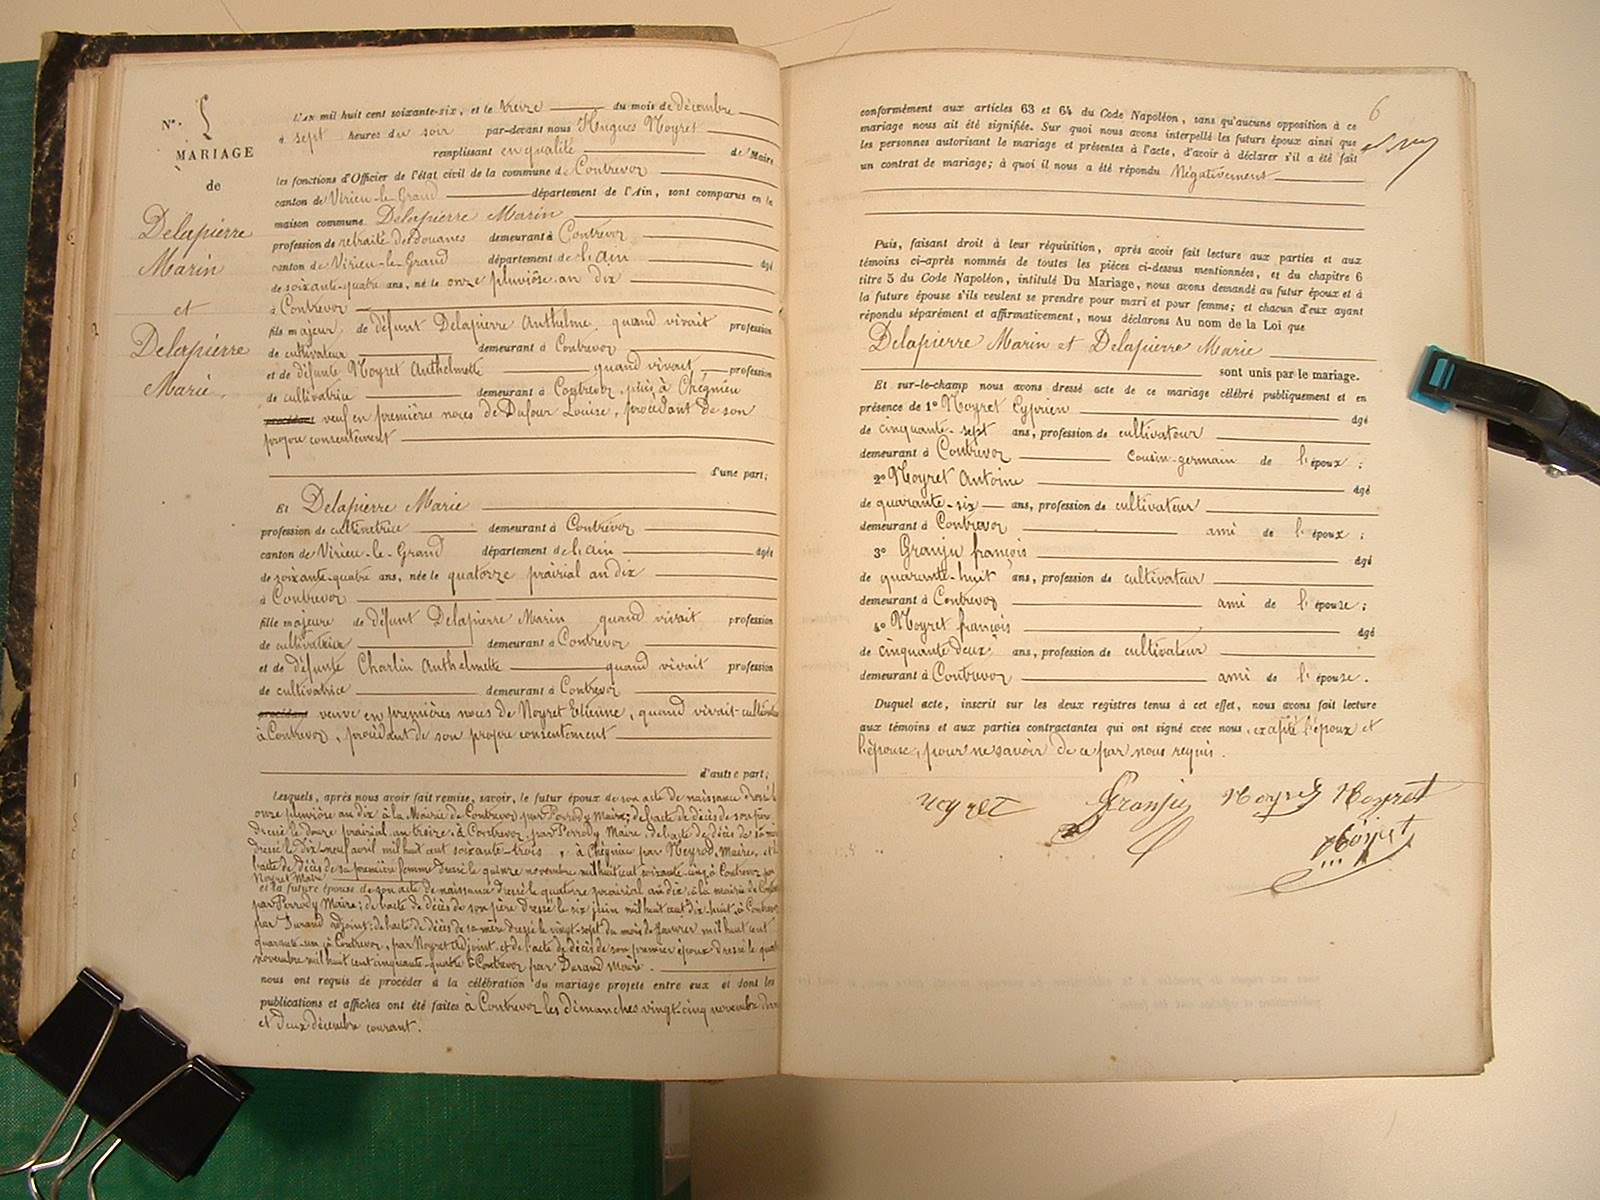 N°. 5
MARIAGE
de
Delapierre
Marin
et
Delapierre
Marie.
L'AN mil huit cent soixante-six, et le treize du mois de décembre
à sept heures du soir par-devant nous Hugues Noyret
remplissant en qualité de Maire
les fonctions d'Officier de l'état civil de la commune de Contrevoz
canton de Virieu-le-Grand département de l'Ain, sont comparus en la
maison commune Delapierre Marin
profession de retraité des Douanes demeurant à Contrevoz
canton de Virieu-le-Grand département de l'ain âgé
de soixante-quatre ans, né le onze pluviôse an dix
à Contrevoz
fils majeur de défunt Delapierre Anthelme, quand vivait profession
de cultivateur demeurant à Contrevoz
et de défunte Noyret Anthelmette quand vivait profession
de cultivatrice demeurant à Contrevoz, puis à Chégnieu
veuf en premières noces de Dufour Louise, procédant de son
propre consentement
d'une part;
Et Delapierre Marie
profession de cultivatrice demeurant à Contrevoz
canton de Virieu-le-Grand département de l'ain âgée
de soixante-quatre ans, née le quatorze prairial an dix
à Contrevoz
fille majeure de défunt Delapierre Marin quand vivait profession
de cultivatrice demeurant à Contrevoz
et de défunte Charlin Anthelmette quand vivait profession
de cultivatrice demeurant à Contrevoz
veuve en premières noces de Noyret Etienne, quand vivait cultivateur
à Contrevoz, procédant de son propre consentement
d'autre part;
Lesquels, après nous avoir fait remise, savoir, le futur époux de son acte de naissance dressé le
onze pluviôse an dix à la Mairie de Contrevoz par Perrody Maire; de l'acte de décès de son père
dressé le douze prairial an treize à Contrevoz par Perrody Maire, de l'acte de décès de sa mère
dressé le dix-neuf avril mil huit cent soixante-trois, à Chégnieu par Neyrod, Maire, et
l'acte de décès de sa première femme dressé le quinze novembre mil huit cent soixante-cinq à Contrevoz par
Noyret Maire
et la future épouse de son acte de naissance dressé le quatorze prairial an dix à la mairie de Contrevoz
par Perrody Maire; de l'acte de décès de son père dressé le six juin mil huit cent dix-huit à Contrevoz
par Durand adjoint; de l'acte de décès de sa mère dressé le vingt-sept du mois de Janvier mil huit cent
quarante-un à Contrevoz, par Noyret Adjoint, et de l'acte de décès de son premier époux dressé le
novembre mil huit cent cinquante-quatre à Contrevoz par Durand Maire.
nous ont requis de procéder à la célébration du mariage projeté entre eux et dont les
publications et affiches ont été faites à Contrevoz les dimanches vingt-cinq novembre
et deux décembre courant.
6
conformément aux articles 63 et 64 du Code Napoléon, sans qu'aucune opposition à ce
mariage nous ait été signifiée. Sur quoi nous avons interpellé les futurs époux ainsi que
les personnes autorisant le mariage et présentes à l'acte, d'avoir à déclarer s'il a été fait
un contrat de mariage; à quoi il nous a été répondu Négativement
Puis, faisant droit à leur réquisition, après avoir fait lecture aux parties et aux
témoins ci-après nommés de toutes les pièces ci-dessus mentionnées, et du chapitre 6
titre 5 du Code Napoléon, intitulé Du Mariage, nous avons demandé au futur époux et à
la future épouse s'ils veulent se prendre pour mari et pour femme; et chacun d'eux ayant
répondu séparément et affirmativement, nous déclarons Au nom de la Loi que
Delapierre Marin et Delapierre Marie
sont unis par le mariage.
Et sur-le-champ nous avons dressé acte de ce mariage célébré publiquement et en
présence de 1° Noyret Cyprien âgé
de cinquante-sept ans, profession de cultivateur
demeurant à Contrevoz cousin-germain de l'époux;
2° Noyret Antoine âgé
de quarante-six ans, profession de cultivateur
demeurant à Contrevoz ami de l'époux;
3° Granju françois âgé
de quarante-huit ans, profession de cultivateur
demeurant à Contrevoz ami de l'épouse;
4° Noyret françois âgé
de cinquante deux ans, profession de cultivateur
demeurant à Contrevoz ami de l'épouse.
Duquel acte, inscrit sur les deux registres tenus à cet effet, nous avons fait lecture
aux témoins et aux parties contractantes qui ont signé avec nous, excepté l'époux et
l'épouse, pour ne savoir de ce par nous requis.
Noyret Granju Noyret Noyret
Noyret